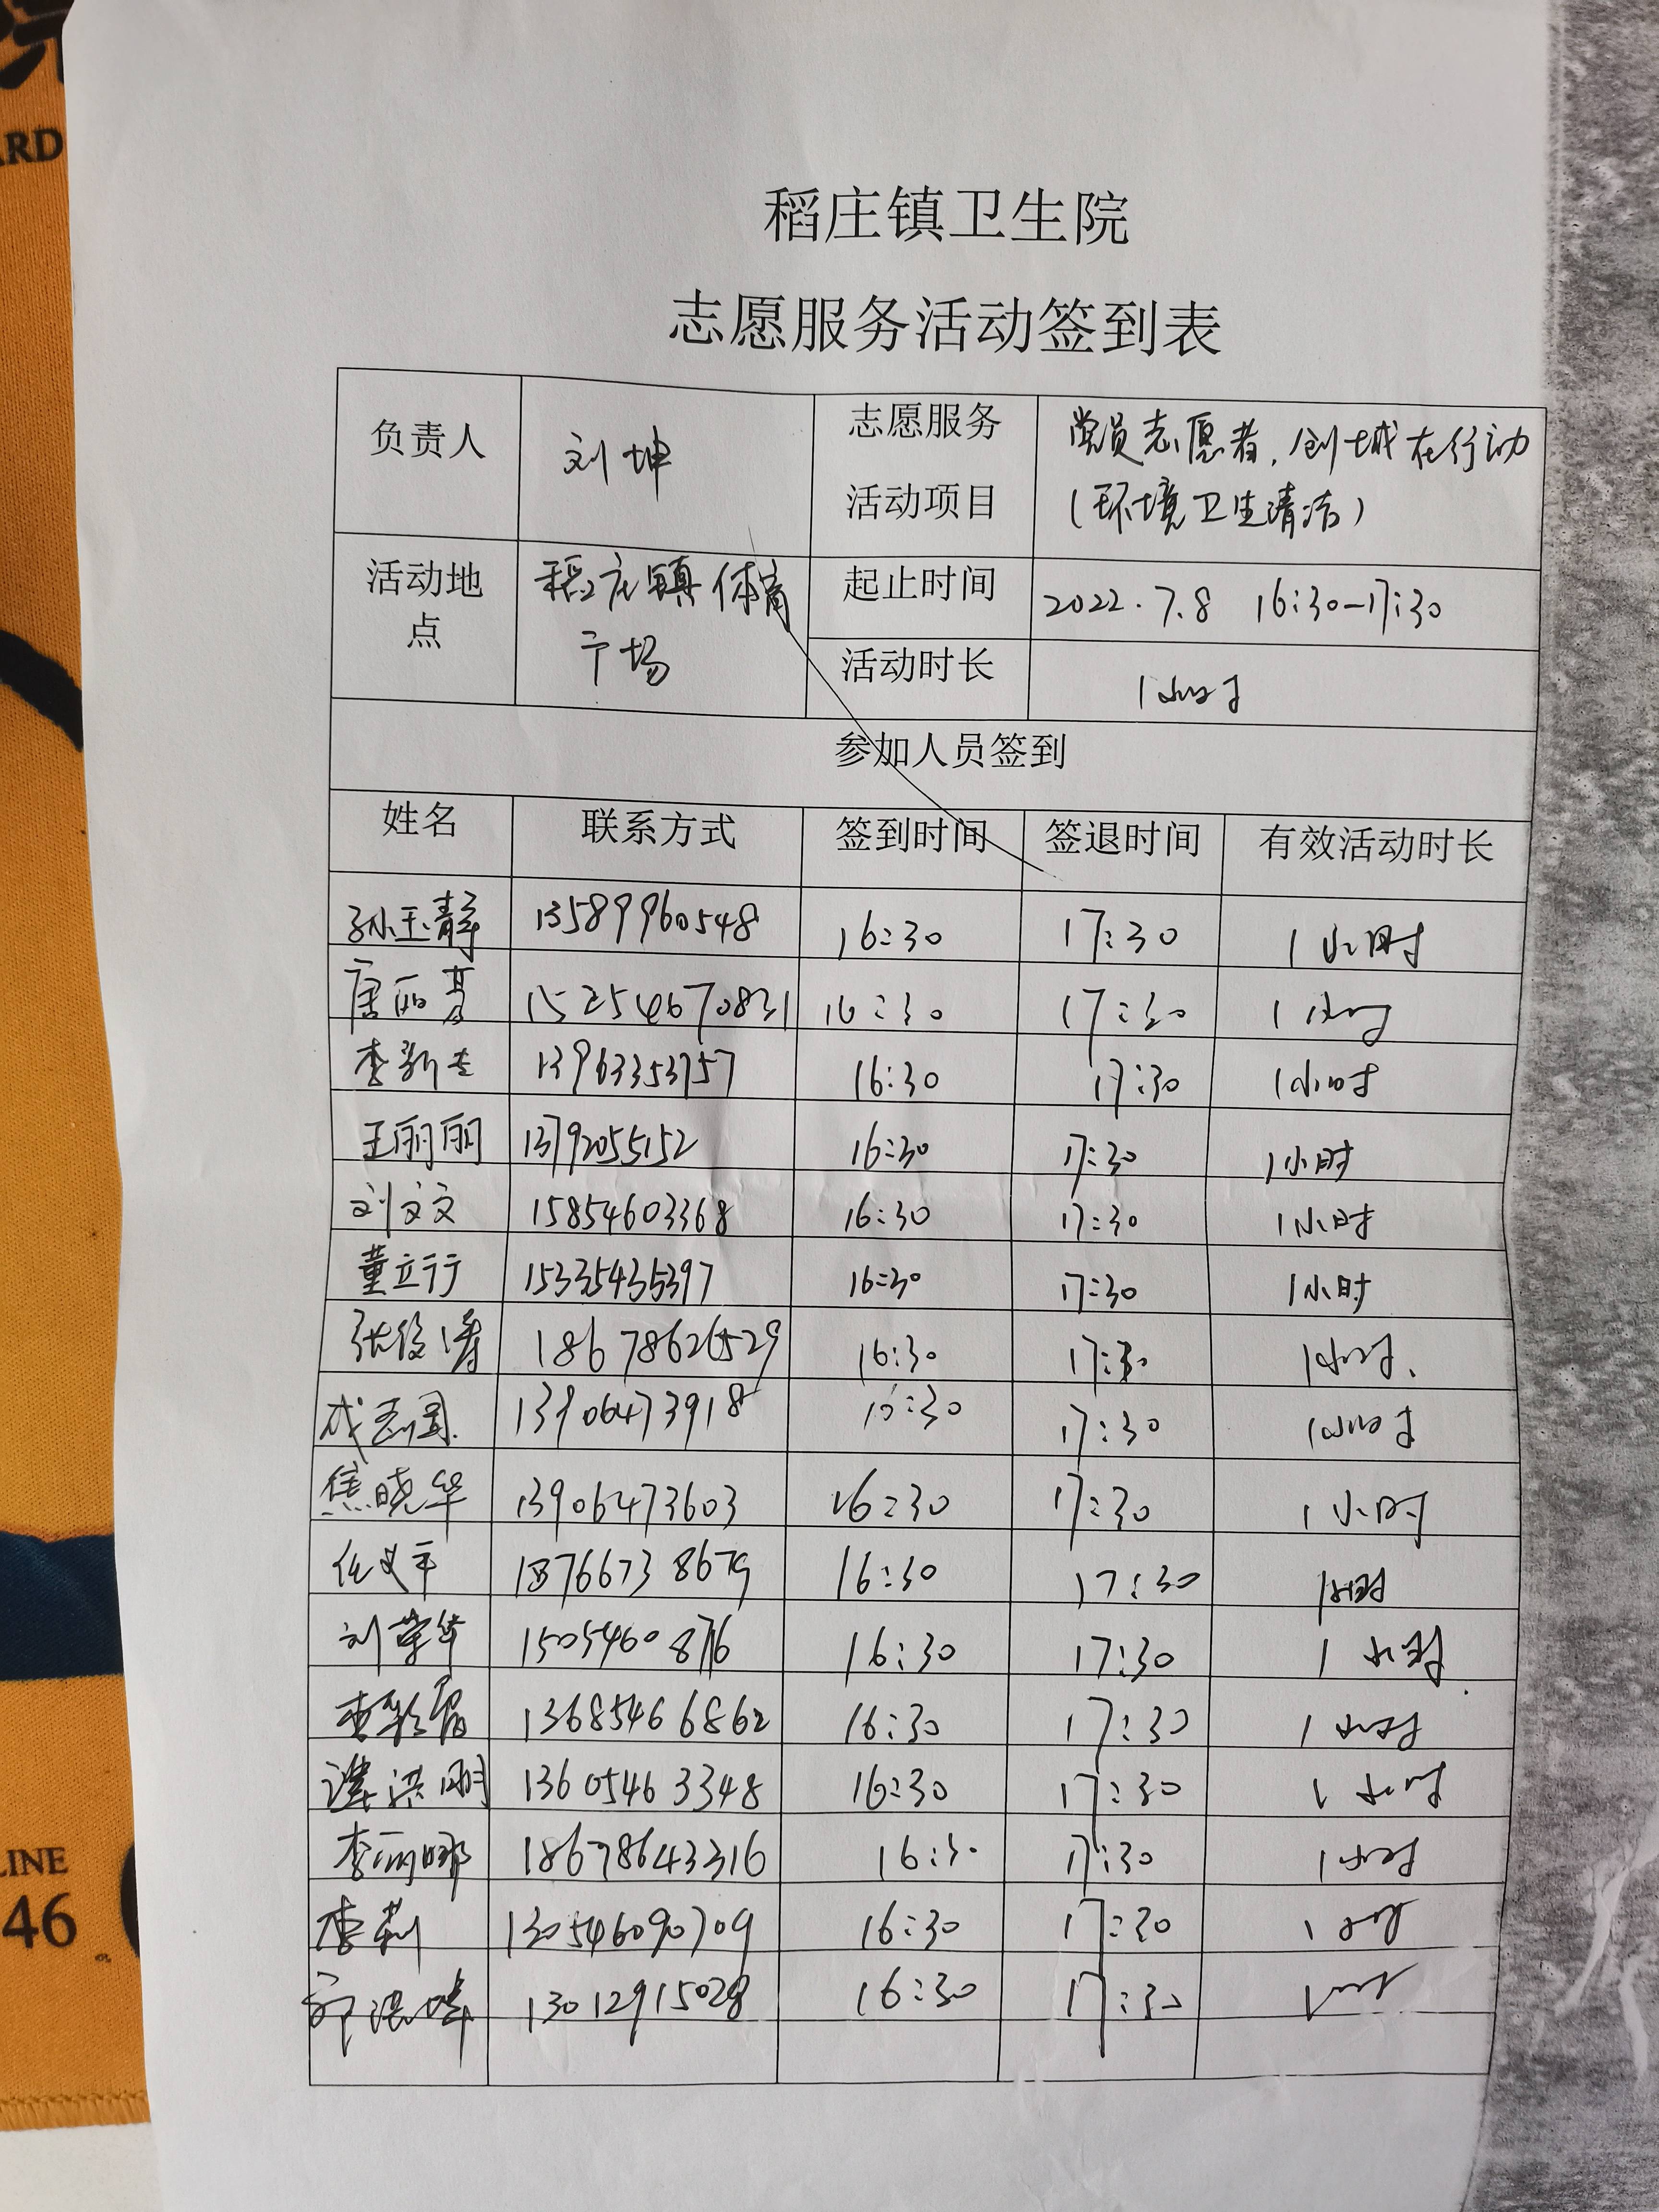 ARD
LINE
46
稻庄镇卫生院
志愿服务活动签到表
负责人 刘坤 志愿服务活动项目 党员志愿者,创城在行动
(环境卫生清洁)
活动地点 稻庄镇体育广场 起止时间 2022.7.8 16:30-17:30
活动时长 1小时
参加人员签到
姓名 联系方式 签到时间 签退时间 有效活动时长
孙玉静 13589960548 16:30 17:30 1小时
15254670831 16:30 17:30 1小时
李新 13963353757 16:30 17:30 1小时
王丽丽 13792055152 16:30 17:30 1小时
刘文文 15854603368 16:30 17:30 1小时
董立行 15335435397 16:30 17:30 1小时
张俊涛 18678626529 16:30 17:30 1小时.
成志国 13906473918 16:30 17:30 1小时
焦晓华 13906473603 16:30 17:30 1小时
任义平 18766738679 16:30 17:30 1小时
刘荣华 1505460876 16:30 17:30 1小时
李彩霞 13685466862 16:30 17:30 1小时
洪明 13605463348 16:30 17:30 1小时
李丽娜 18678643316 16:30 17:30 1小时
李莉 13054609709 16:30 17:30 1小时
13012915028 16:30 17:30 1小时